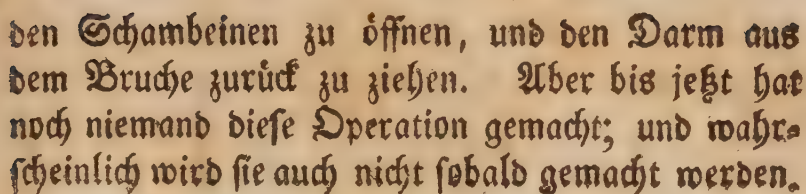 den Schambeinen zu öffnen, und den Darm aus
dem Bruche zurück zu ziehen. Aber bis jetzt hat
noch niemand diese Operation gemacht; und wahr-
scheinlich wird sie auch nicht sobald gemacht werden.